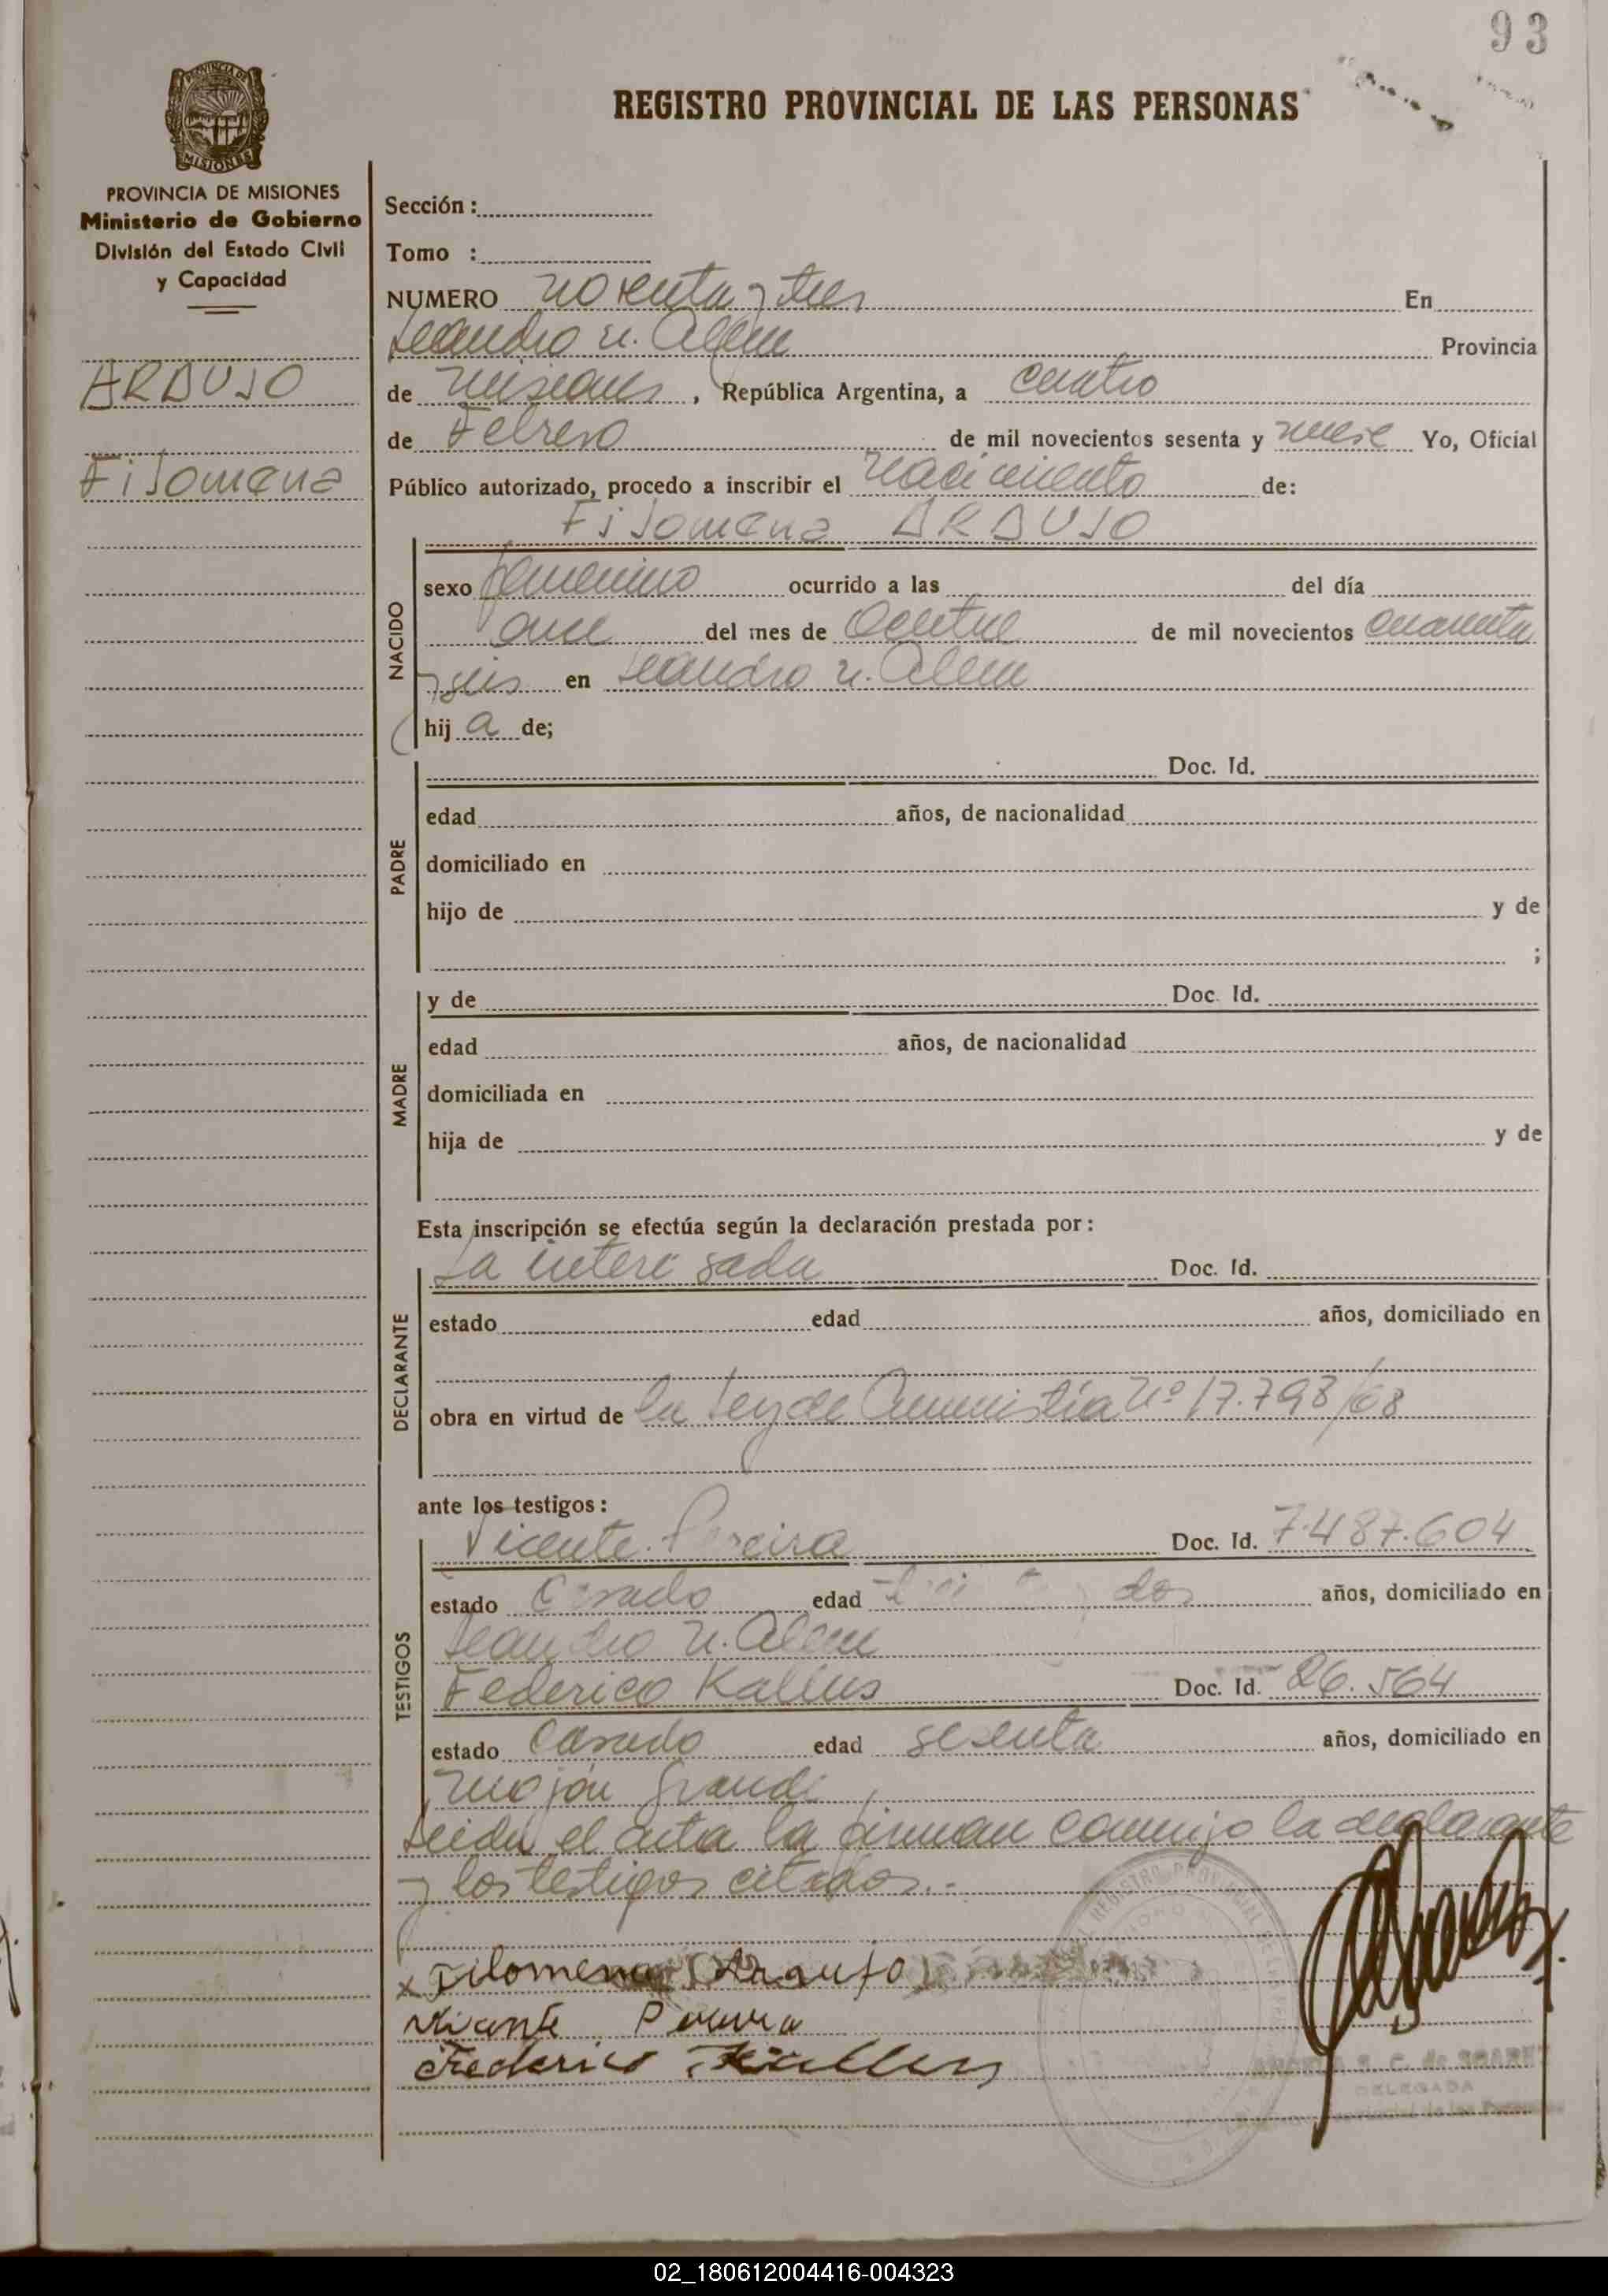 93
REGISTRO PROVINCIAL DE LAS PERSONAS
PROVINCIA DE MISIONES
PROVINCIA DE MISIONES
Ministerio de Gobierno
División del Estado Civil
y Capacidad
ARAUJO
Filomena
Sección :
Tomo :
NUMERO noventa y tres En
Leandro N. Alem Provincia
de Misiones, República Argentina, a cuatro
de Febrero de mil novecientos sesenta y nueve Yo, Oficial
Público autorizado, procedo a inscribir el nacimiento de:
Filomena ARAUJO
NACIDO
sexo femenino ocurrido a las del día
once del mes de Octubre de mil novecientos cuarenta
y seis en Leandro N. Alem
hij a de;
PADRE
Doc. Id.
edad años, de nacionalidad
domiciliado en
hijo de y de
;
MADRE
y de Doc. Id.
edad años, de nacionalidad
domiciliada en
hija de y de
Esta inscripción se efectúa según la declaración prestada por :
DECLARANTE
La interesada Doc. Id.
estado edad años, domiciliado en
obra en virtud de la Ley de Amnistía Nº 17.798/68
ante los testigos :
TESTIGOS
Vicente Pereira Doc. Id. 7.487.604
estado Casado edad dos años, domiciliado en
Leandro N. Alem
Federico Kallus Doc. Id. 26.564
estado Casado edad sesenta años, domiciliado en
Mojón Grande
Leida el acta la firman conmigo la declarante
y los testigos citados.-
x Filomena Araujo
Vicente Pereira
Federico Kallus
DELEGADA
02_180612004416-004323